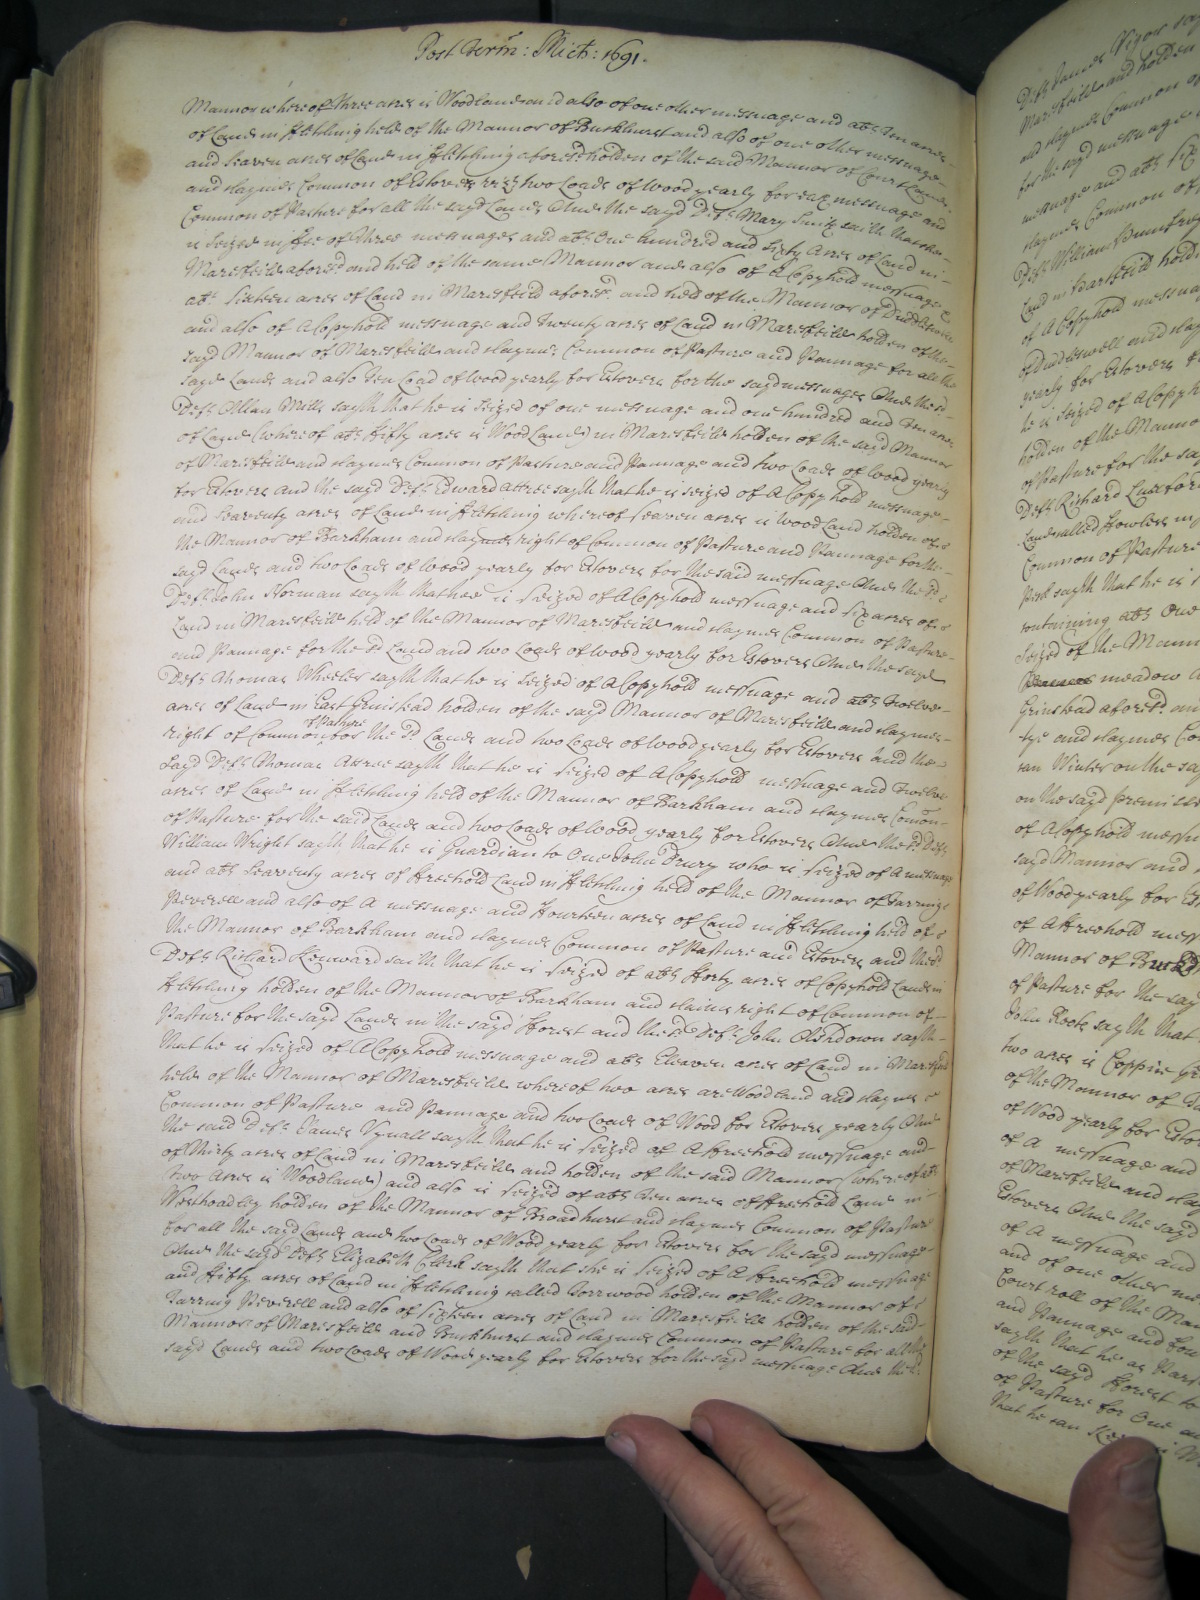 Post Term: Mich: 1691.
Mannor whereof three acres is Woodland and also of one other messuage and abt Ten acres
of Land in Fletching held of the Mannor of Buckhurst and also of one other messuage
and Seaven acres of Land in Fletching aforesd holden of the said Mannor of Court Lands
and claymes Common of Estovers vizt two Loads of wood yearly for each messuage and
Common of Pasture for all the sayd Lands And the sayd Deft Mary Smith saith that she
is Seized in fee of three messuages and abt One hundred and Sixty Acres of Land in
Maresfeild aforesd and held of the same Mannor and also of A Copyhold messuage
abt Sixteen acres of Land in Maresfeild aforesd and held of the Mannor of Duddleswell
and also of A Copyhold messuage and Twenty acres of Land in Maresfeild holden of the
sayd Mannor of Maresfeild and claymes Common of Pasture and Pannage for all the
sayd Lands and also Ten Load of wood yearly for Estovers for the sayd messuages And the sd
Deft Allan Mills sayth that he is Seized of one messuage and one hundred and Ten acres
of Land (whereof abt Fifty acres is Wood Land) in Maresfeild holden of the sayd Mannor
of Maresfeild and claymes Common of Pasture and Pannage and two Loads of wood yearly
for Estovers And the sayd Deft Edward Attree sayth that he is seized of A Copyhold messuage
and Seaventy acres of Land in Fletching whereof seaven acres is Wood Land holden of
the Mannor of Barkham and claymes right of Common of Pasture and Pannage for the
sayd Lands and two Loads of wood yearly for Estovers for the said messuage And the sd
Deft John Norman sayth that hee is Seized of A Copyhold messuage and six acres of
Land in Maresfeild held of the Mannor of Maresfeild and claymes Common of Pasture
and Pannage for the sd Land and two Loads of wood yearly for Estovers And the sayd
Deft Thomas Wheeler sayth that he is Seized of A Copyhold messuage and abt Twelve
acres of Land in East Grinstead holden of the sayd Mannor of Maresfeild and claymes
of Pasture
right of Common for the sd Lands and two Loads of wood yearly for Estovers And the
sayd Deft Thomas Attree sayth that he is Seized of A Copyhold messuage and Twelve
acres of Land in Fletching held of the Mannor of Barkham and claymes Comon
of Pasture for the said Lands and two Loads of wood yearly for Estovers And the sd Deft
William Wright sayth that he is Guardian to One John Drury who is seized of A messuage
and abt Seaventy acres of Freehold Land in Fletching held of the Mannor of Tarring
Peverell and also of A messuage and Fourteen acres of Land in Fletching held of
the Mannor of Barkham and claymes Common of Pasture and Estovers and the sd
Deft Richard Kenward saith that he is Seized of abt Forty acres of Copyhold Lands in
Fletching holden of the Mannor of Barkham and claims right of Common of
Pasture for the sayd Lands in the sayd Forest and the sd Deft John Ashdown sayth
that he is Seized of A Copyhold messuage and abt Eleaven acres of Land in Maresfeild
held of the Mannor of Maresfeild whereof two acres are Woodland and claymes
Common of Pasture and Pannage and two Loads of Wood for Estovers yearly And
the said Deft James Vynall sayth that he is seized of A Freehold messuage and
of thirty acres of Land in Maresfeild and holden of the said Mannor (whereof abt
two Acres is Woodland) and also is seized of abt Ten acres of Freehold Land in
Westhoadley holden of the Mannor of Broadhurst and claymes Common of Pasture
for all the sayd Lands and two Loads of Wood yearly for Estovers for the sayd messuage
And the sayd Deft Elizabeth Clerk sayth that she is Seized of A Freehold messuage
and Fifty acres of Land in Fletching called Torrwood holden of the Mannor of
Tarring Peverell and also of sixteen acres of Land in Maresfeild holden of the said
Mannor of Maresfeild and Buckhurst and claymes Common of Pasture for all the
sayd Lands and two Loads of Wood yearly for Estovers for the sayd messuage And the sd
Deft James Vigor say
Maresfeild and holden
and claymes Common of
for the sayd messuage
messuage and abt six
claymes Common of
Deft William
Land in Hartfeild holden
of A Copyhold messuage
of Duddleswell and clay
yearly for Estovers
he is seized of A Copyhold
holden of the Mannor
of Pasture for the say
Deft Richard
Land called Howless in
Common of Pasture
sayth that he is
containing abt One
Seized of the Mann
meadow
Grinstead aforesd and
and claymes Co
Winter on the say
on the sayd premisses
of A Copyhold messu
sayd Mannor and
of Wood yearly for Es
of A Freehold mess
Mannor of
of Pasture for the say
John Rooke sayth that
two acres is Coppice
of the Mannor of
of Wood yearly for Esto
of A messuage and
of Maresfeild and clay
Estovers And the sayd
of A messuage and
and of one other me
Court roll of the Man
and Pannage and
sayth that he as
of the sayd Forest to
of Pasture for One
that he can